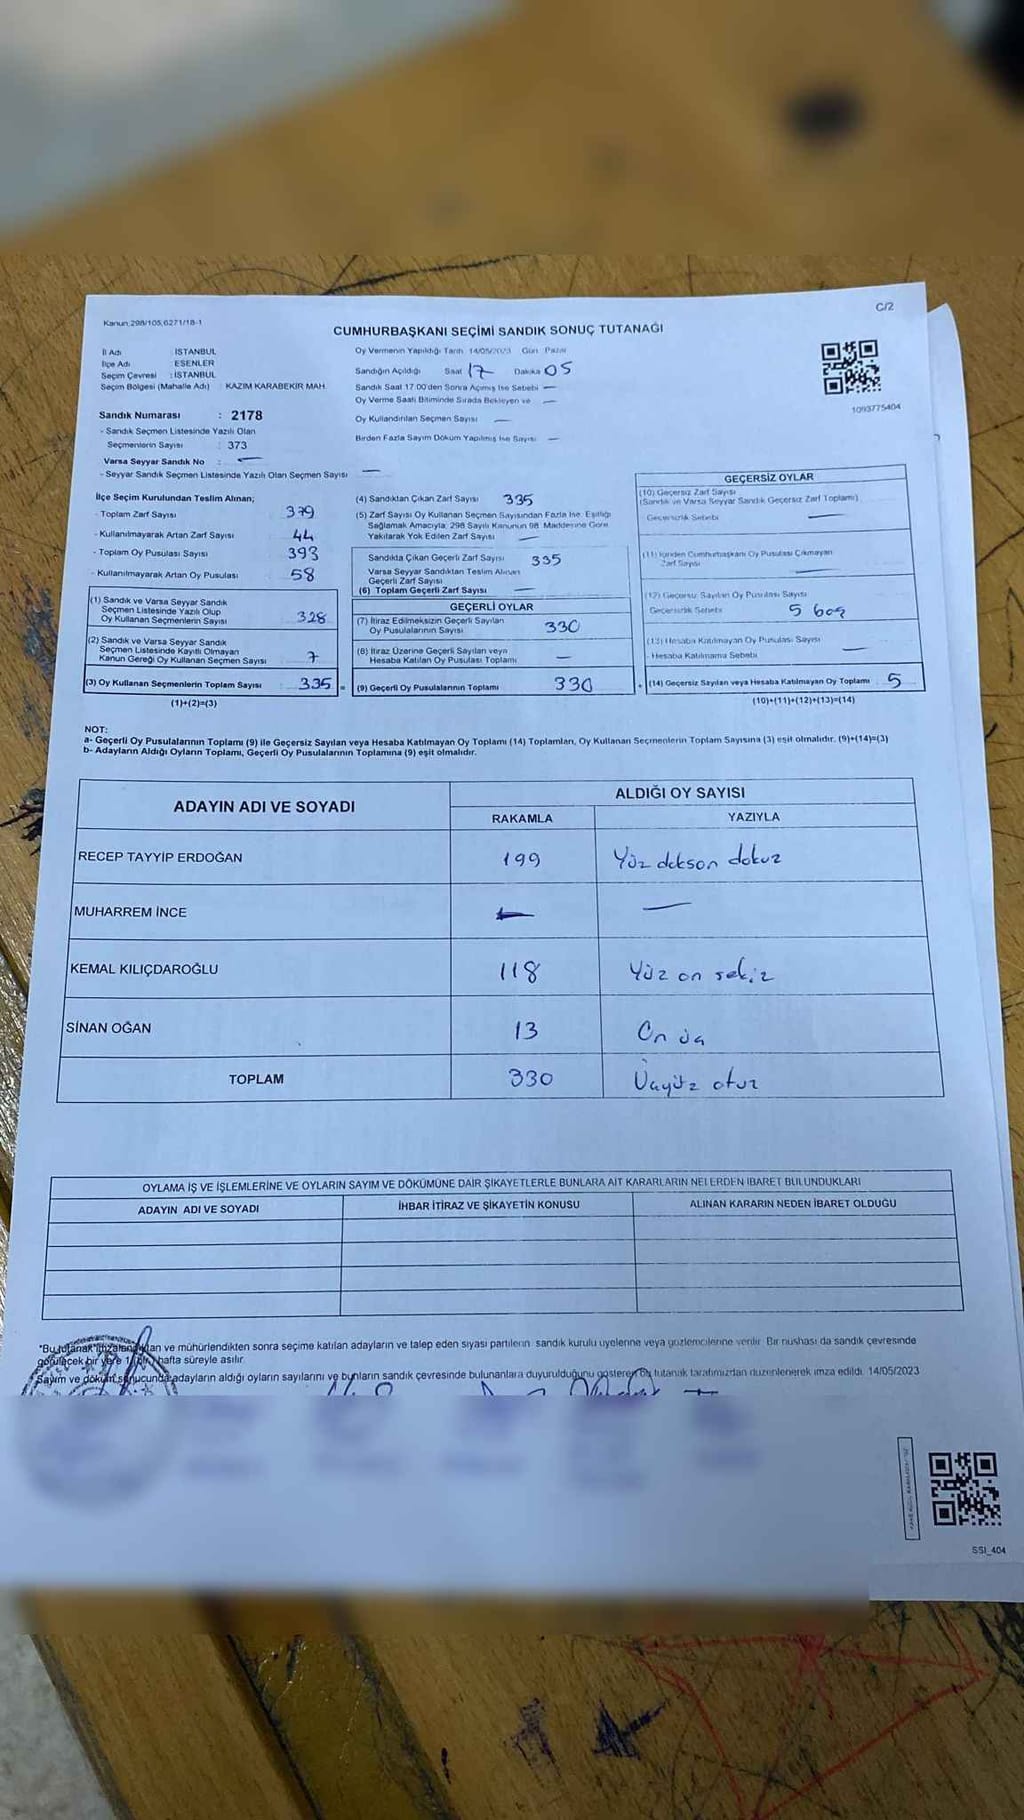 Kanun:298/105,6271/18-1
C/2
CUMHURBAŞKANI SEÇİMİ SANDIK SONUÇ TUTANAĞI
İl Adı : İSTANBUL
İlçe Adı : ESENLER
Seçim Çevresi : İSTANBUL
Seçim Bölgesi (Mahalle Adı) : KAZIM KARABEKİR MAH.
Sandık Numarası : 2178
- Sandık Seçmen Listesinde Yazılı Olan
Seçmenlerin Sayısı : 373
Varsa Seyyar Sandık No : —
- Seyyar Sandık Seçmen Listesinde Yazılı Olan Seçmen Sayısı —
Oy Vermenin Yapıldığı Tarih 14/05/2023 Gün Pazar
Sandığın Açıldığı Saat 17 Dakika 05
Sandık Saat 17:00'den Sonra Açılmış İse Sebebi —
Oy Verme Saati Bitiminde Sırada Bekleyen ve —
Oy Kullandırılan Seçmen Sayısı —
Birden Fazla Sayım Döküm Yapılmış İse Sayısı —
1093775404
İlçe Seçim Kurulundan Teslim Alınan;
- Toplam Zarf Sayısı 379
- Kullanılmayarak Artan Zarf Sayısı 44
- Toplam Oy Pusulası Sayısı 393
- Kullanılmayarak Artan Oy Pusulası 58
(1) Sandık ve Varsa Seyyar Sandık
Seçmen Listesinde Yazılı Olup
Oy Kullanan Seçmenlerin Sayısı 328
(2) Sandık ve Varsa Seyyar Sandık
Seçmen Listesinde Kayıtlı Olmayan
Kanun Gereği Oy Kullanan Seçmen Sayısı 7
(3) Oy Kullanan Seçmenlerin Toplam Sayısı 335
(1)+(2)=(3)
(4) Sandıktan Çıkan Zarf Sayısı 335
(5) Zarf Sayısı Oy Kullanan Seçmen Sayısından Fazla İse, Eşitliği
Sağlamak Amacıyla; 298 Sayılı Kanunun 98. Maddesine Göre
Yakılarak Yok Edilen Zarf Sayısı —
Sandıkta Çıkan Geçerli Zarf Sayısı 335
Varsa Seyyar Sandıktan Teslim Alınan
Geçerli Zarf Sayısı
(6) Toplam Geçerli Zarf Sayısı —
GEÇERLİ OYLAR
(7) İtiraz Edilmeksizin Geçerli Sayılan
Oy Pusulalarının Sayısı 330
(8) İtiraz Üzerine Geçerli Sayılan veya
Hesaba Katılan Oy Pusulası Toplamı —
= (9) Geçerli Oy Pusulalarının Toplamı 330
GEÇERSİZ OYLAR
(10) Geçersiz Zarf Sayısı
(Sandık ve Varsa Seyyar Sandık Geçersiz Zarf Toplamı)
Geçersizlik Sebebi —
(11) İçinden Cumhurbaşkanı Oy Pusulası Çıkmayan
Zarf Sayısı —
(12) Geçersiz Sayılan Oy Pusulası Sayısı
Geçersizlik Sebebi 5
(13) Hesaba Katılmayan Oy Pusulası Sayısı
- Hesaba Katılmama Sebebi —
+ (14) Geçersiz Sayılan veya Hesaba Katılmayan Oy Toplamı 5
(10)+(11)+(12)+(13)=(14)
NOT:
a- Geçerli Oy Pusulalarının Toplamı (9) ile Geçersiz Sayılan veya Hesaba Katılmayan Oy Toplamı (14) Toplamları, Oy Kullanan Seçmenlerin Toplam Sayısına (3) eşit olmalıdır. (9)+(14)=(3)
b- Adayların Aldığı Oyların Toplamı, Geçerli Oy Pusulalarının Toplamına (9) eşit olmalıdır.
ADAYIN ADI VE SOYADI ALDIĞI OY SAYISI
RAKAMLA YAZIYLA
RECEP TAYYİP ERDOĞAN 199 Yüz doksan dokuz
MUHARREM İNCE — —
KEMAL KILIÇDAROĞLU 118 Yüz on sekiz
SİNAN OĞAN 13 On üç
TOPLAM 330 Üçyüz otuz
OYLAMA İŞ VE İŞLEMLERİNE VE OYLARIN SAYIM VE DÖKÜMÜNE DAİR ŞİKAYETLERLE BUNLARA AİT KARARLARIN NELERDEN İBARET BULUNDUKLARI
ADAYIN ADI VE SOYADI İHBAR İTİRAZ VE ŞİKAYETİN KONUSU ALINAN KARARIN NEDEN İBARET OLDUĞU
*Bu tutanak imzalandıktan ve mühürlendikten sonra seçime katılan adayların ve talep eden siyasi partilerin sandık kurulu üyelerine veya gözlemcilerine verilir. Bir nüshası da sandık çevresinde
görülecek bir yere 1 (bir) hafta süreyle asılır.
*Sayım ve döküm sonucunda adayların aldığı oyların sayılarını ve bunların sandık çevresinde bulunanlara duyurulduğunu gösteren bu tutanak tarafımızdan düzenlenerek imza edildi. 14/05/2023
SSI_404